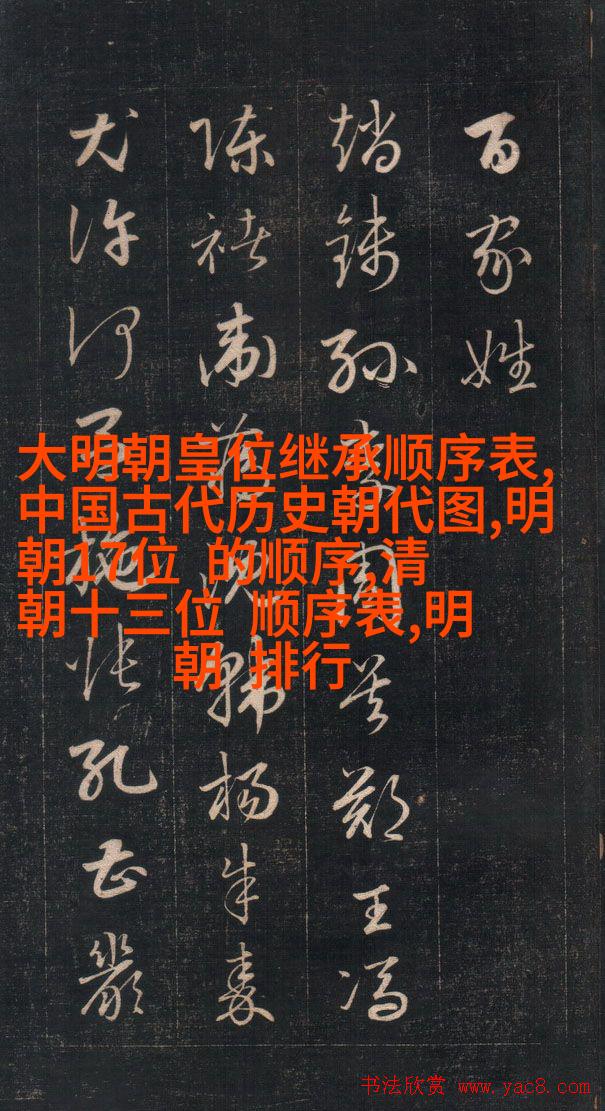 百家姓
趙錢孫李周吳鄭王馮
陳褚衛蔣沈韓楊朱秦
尤許何呂施張孔曹嚴
大明朝皇位继承顺序表,
中国古代历史朝代图,明
朝17位 的顺序,清
朝十三位 顺序表,明
朝 排行
书法欣赏 www.yac8.com